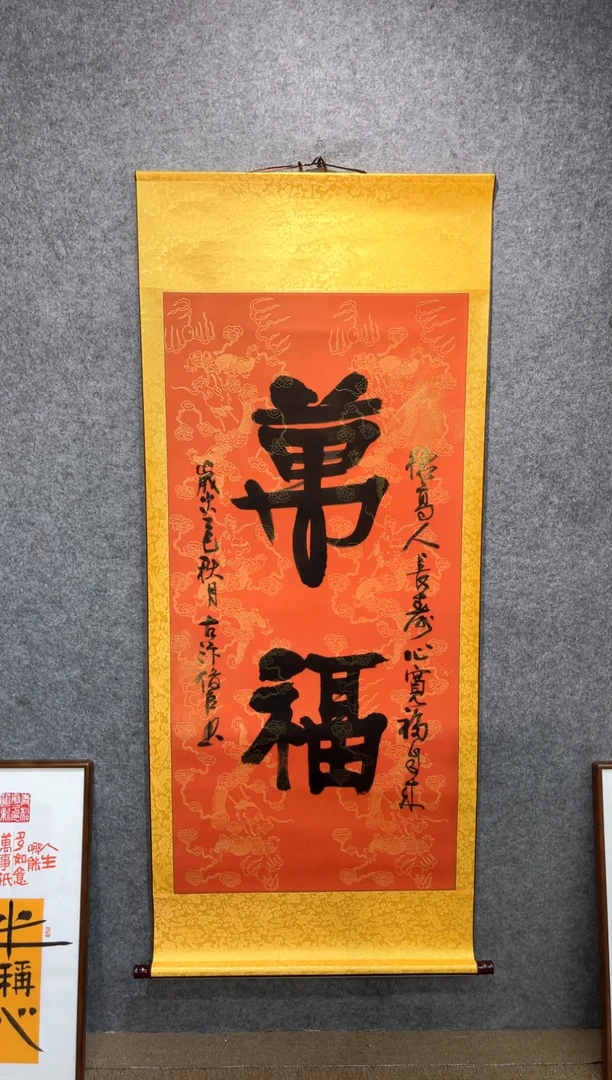 德高人長壽心寬福自來
萬福
歲次乙巳秋月古汴書
人生
哪能
多如意
萬事祇
半稱心